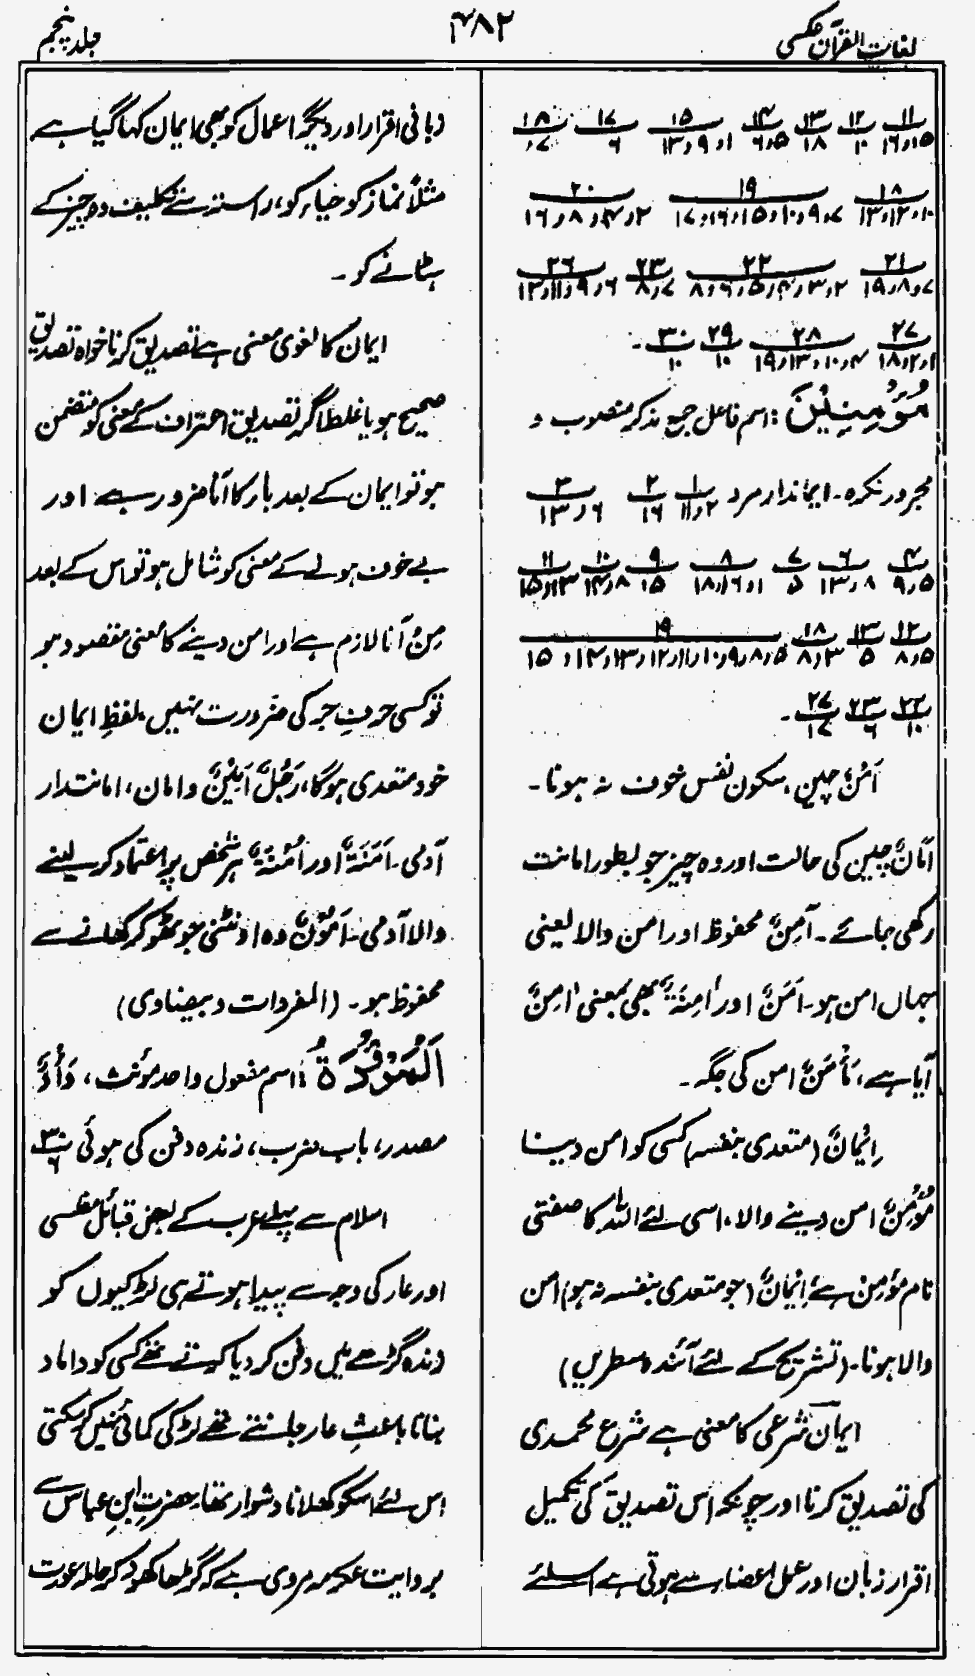 لغات القرآن عکسی
۴۸۲
جلد پنجم
۱۱ ۱۲ ۱۳ ۱۴ ۱۵ ۱۷ ۱۸
۱۵و۱۶ ۱۰ ۱۸ ۵و۶ ۱و۹و۱۳ ۶ ۷و
۱۸ ۱۹ ۲۰
۱۰و۱۲و۱۳ ۷و۹و۱۰و۱۵و۱۶و۱۷ ۲و۴و۸و۱۶
۲۱ ۲۲ ۲۳ ۲۶
۷و۸و۱۹ ۲و۳و۴و۵و۶و۸ ۷و۸ ۶و۹و۱۱و۱۳
۲۷ ۲۸ ۲۹ ۳۰
۱و۲و۱۸ ۴و۱۰و۱۳و۱۹ ۱۰ ۱۰ ۔
مُؤْمِنِیْنَ : اسم فاعل جمع مذکر منصوب و
مجرور نکرہ ۔ ایماندار مرد ۱ ۲ ۳
۲و۱۱ ۱۶ ۶و۱۳
۴ ۶ ۷ ۸ ۹ ۱۰ ۱۱
۵و۹ ۸و۱۳ ۵ ۱و۱۶و۱۸ ۱۵ ۸و۱۴ ۱۳و۱۵
۱۲ ۱۳ ۱۸ ۱۹
۵و۸ ۵ ۳و۸ ۵و۸و۹و۱۰و۱۱و۱۲و۱۳و۱۴و۱۵
۲۲ ۲۳ ۲۷
۱۰ ۶ ۱۷ ۔
اَمْنٌ چین، سکون نفس خوف نہ ہونا ۔
اَمَانٌ چین کی حالت اور وہ چیز جو بطور امانت
رکھی جائے ۔ آمِنٌ محفوظ اور امن والا یعنی
جہاں امن ہو ۔ اَمَنٌ اور اٰمِنَۃٌ بھی بمعنی اٰمِنٌ
آیا ہے، مَأْمَنٌ امن کی جگہ ۔
اِیْمَانٌ (متعدی بنفسہ) کسی کو امن دینا
مُؤْمِنٌ امن دینے والا ۔ اسی لئے اللہ کا صفتی
نام مؤمن ہے اِیْمَانٌ (جو متعدی بنفسہ نہ ہو) امن
والا ہونا ۔ (تشریح کے لئے آئندہ سطریں)
ایمان شرعی کا معنی ہے شرع محمدی
کی تصدیق کرنا اور چونکہ اس تصدیق کی تکمیل
اقرار زبان اور عمل اعضاء سے ہوتی ہے اسلئے
زبانی اقرار اور دیگر اعمال کو بھی ایمان کہا گیا ہے
مثلاً نماز کو حیاء کو، راستہ سے تکلیف دہ چیز کے
ہٹانے کو ۔
ایمان کا لغوی معنی ہے تصدیق کرنا خواہ تصدیق
صحیح ہو یا غلط اگر تصدیق اعتراف کے معنی کو متضمن
ہو تو ایمان کے بعد باء کا آنا ضرور ہے اور
بے خوف ہونے کے معنی کو شامل ہو تو اس کے بعد
مِنْ آنا لازم ہے اور امن دینے کا معنی مقصود ہو
تو کسی حرفِ جر کی ضرورت نہیں لفظِ ایمان
خود متعدی ہوگا، رَجُلٌ اَمِیْنٌ و امان، امانتدار
آدمی ۔ اَمَنَۃٌ اور اُمَنَۃٌ ہر شخص پر اعتماد کر لینے
والا آدمی ۔ اَمُوْنٌ وہ اونٹنی جو ٹھوکر کھانے سے
محفوظ ہو ۔ (المفردات و بیضاوی)
اَلْمَوْءُدَۃُ : اسم مفعول واحد مؤنث، وَأْدٌ
مصدر، باب ضرب، زندہ دفن کی ہوئی ۳۰
۶
اسلام سے پہلے عرب کے بعض قبائل مفلسی
اور عار کی وجہ سے پیدا ہوتے ہی لڑکیوں کو
زندہ گڑھے میں دفن کر دیا کرتے تھے کسی کو داماد
بنانا باعثِ عار جانتے تھے لڑکی کمائی نہیں کرسکتی
اس لئے اسکو کھلانا دشوار تھا، حضرت ابنِ عباس سے
بروایت عکرمہ مروی ہے کہ گڑھا کھود کر حاملہ عورت